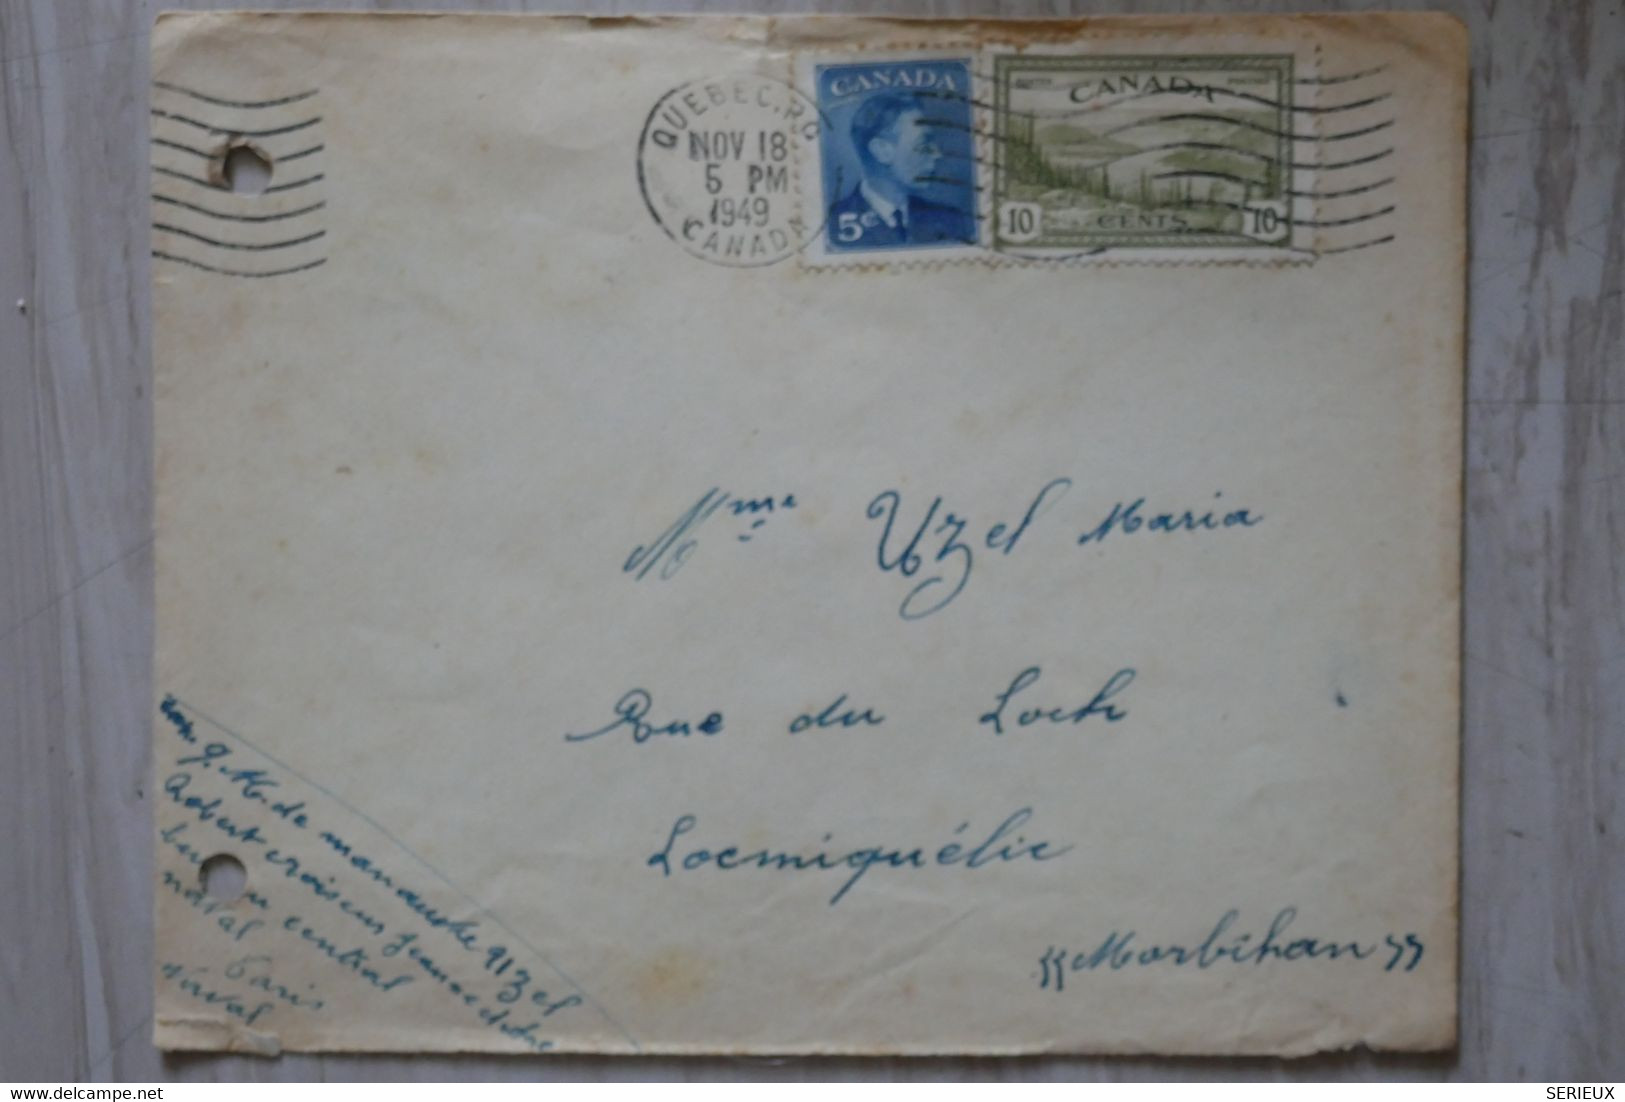 QUEBEC, P.Q.
NOV 18
5 PM
1949
CANADA
CANADA
5¢
POSTES POSTAGE
CANADA
10 CENTS 10
Mme Uzel Maria
Rue du Loch
Locmiquélic
"Morbihan"
Q. M. de manœuvre Uzel
Robert croiseur Jeanne d'Arc
bureau central
naval Paris
Naval
SERIEUX